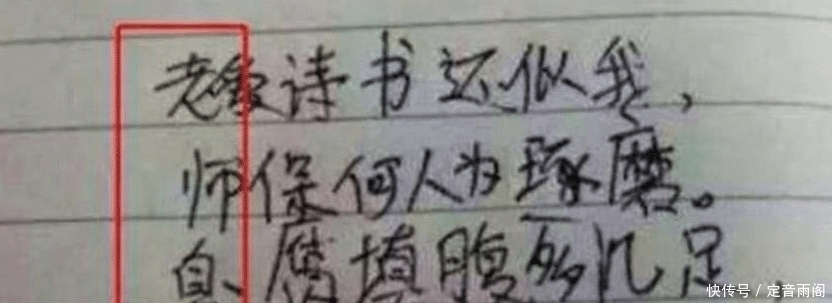 老爱诗书还似我,
师保何人为琢磨。
自 填腹多几足
快传号 / 定音雨阁